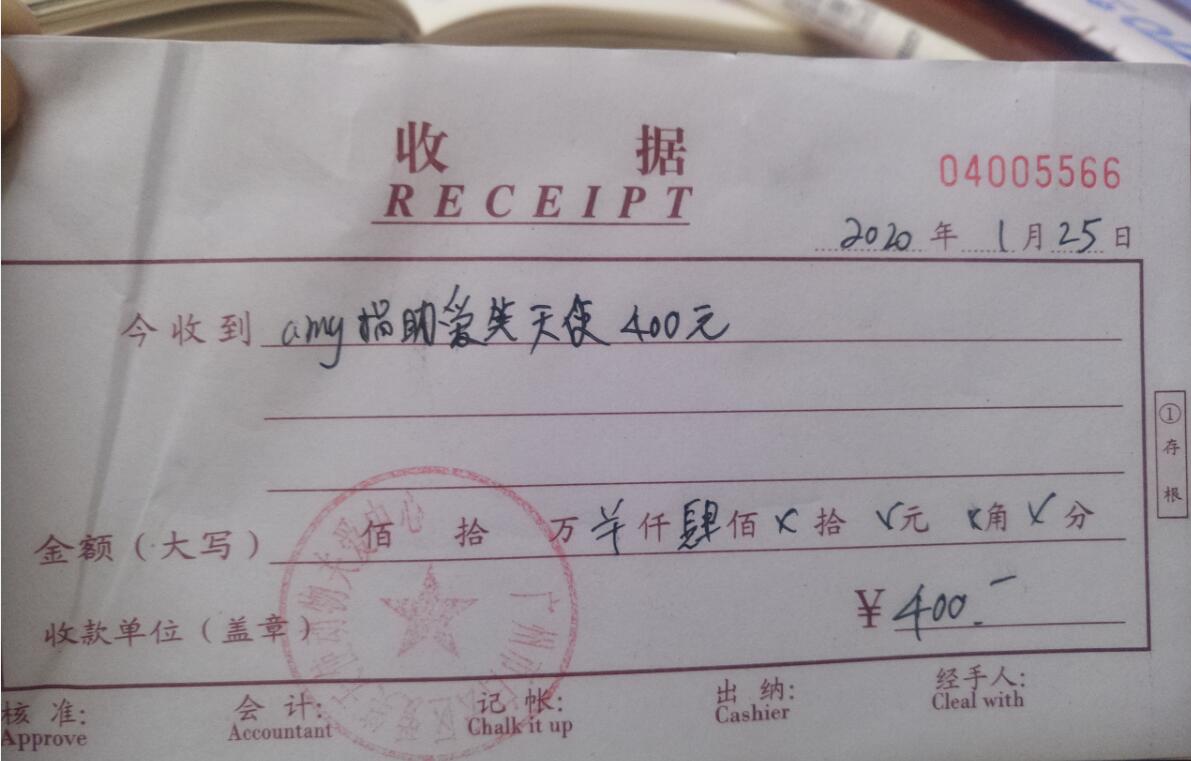 收 据
RECEIPT
04005566
2020 年 1 月 25 日
今收到 amy捐助爱笑天使 400元
金额(大写) 佰 拾 万 羊 仟 肆 佰 × 拾 × 元 × 角 × 分
收款单位(盖章) ¥ 400.-
核 准: 会 计: 记 帐: 出 纳: 经手人:
Approve Accountant Chalk it up Cashier Cleal with
① 存根